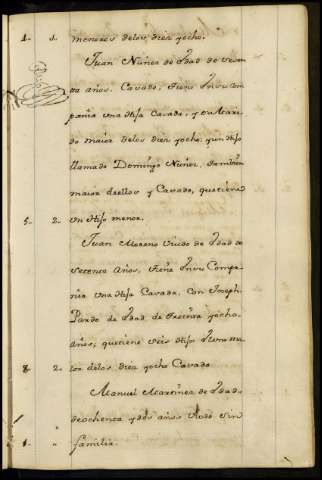 1. 1. menores delos diez yocho.
Juan Nuñez de Edad de Sesen
ta años. Casado, tiene En su com
pañia una Hija Casada, y su Mari
do maior delos diez yocho, y un Hijo
llamado Domingo Nuñez, tambien
maior de ellos y Casado, que tiene
5. 2. un Hijo menor.
Juan Moreno Viudo de Edad de
Setenta Años, tiene En su Compa
ñia una Hija Casada, con Joseph
Pardo de Edad de treinta yocho
años, que tiene seis Hijos Uno ma
8. 2. ior delos diez yocho Casado
Manuel Martinez de Edad
de ochenta y dos años Viudo Sin
1. " familia.